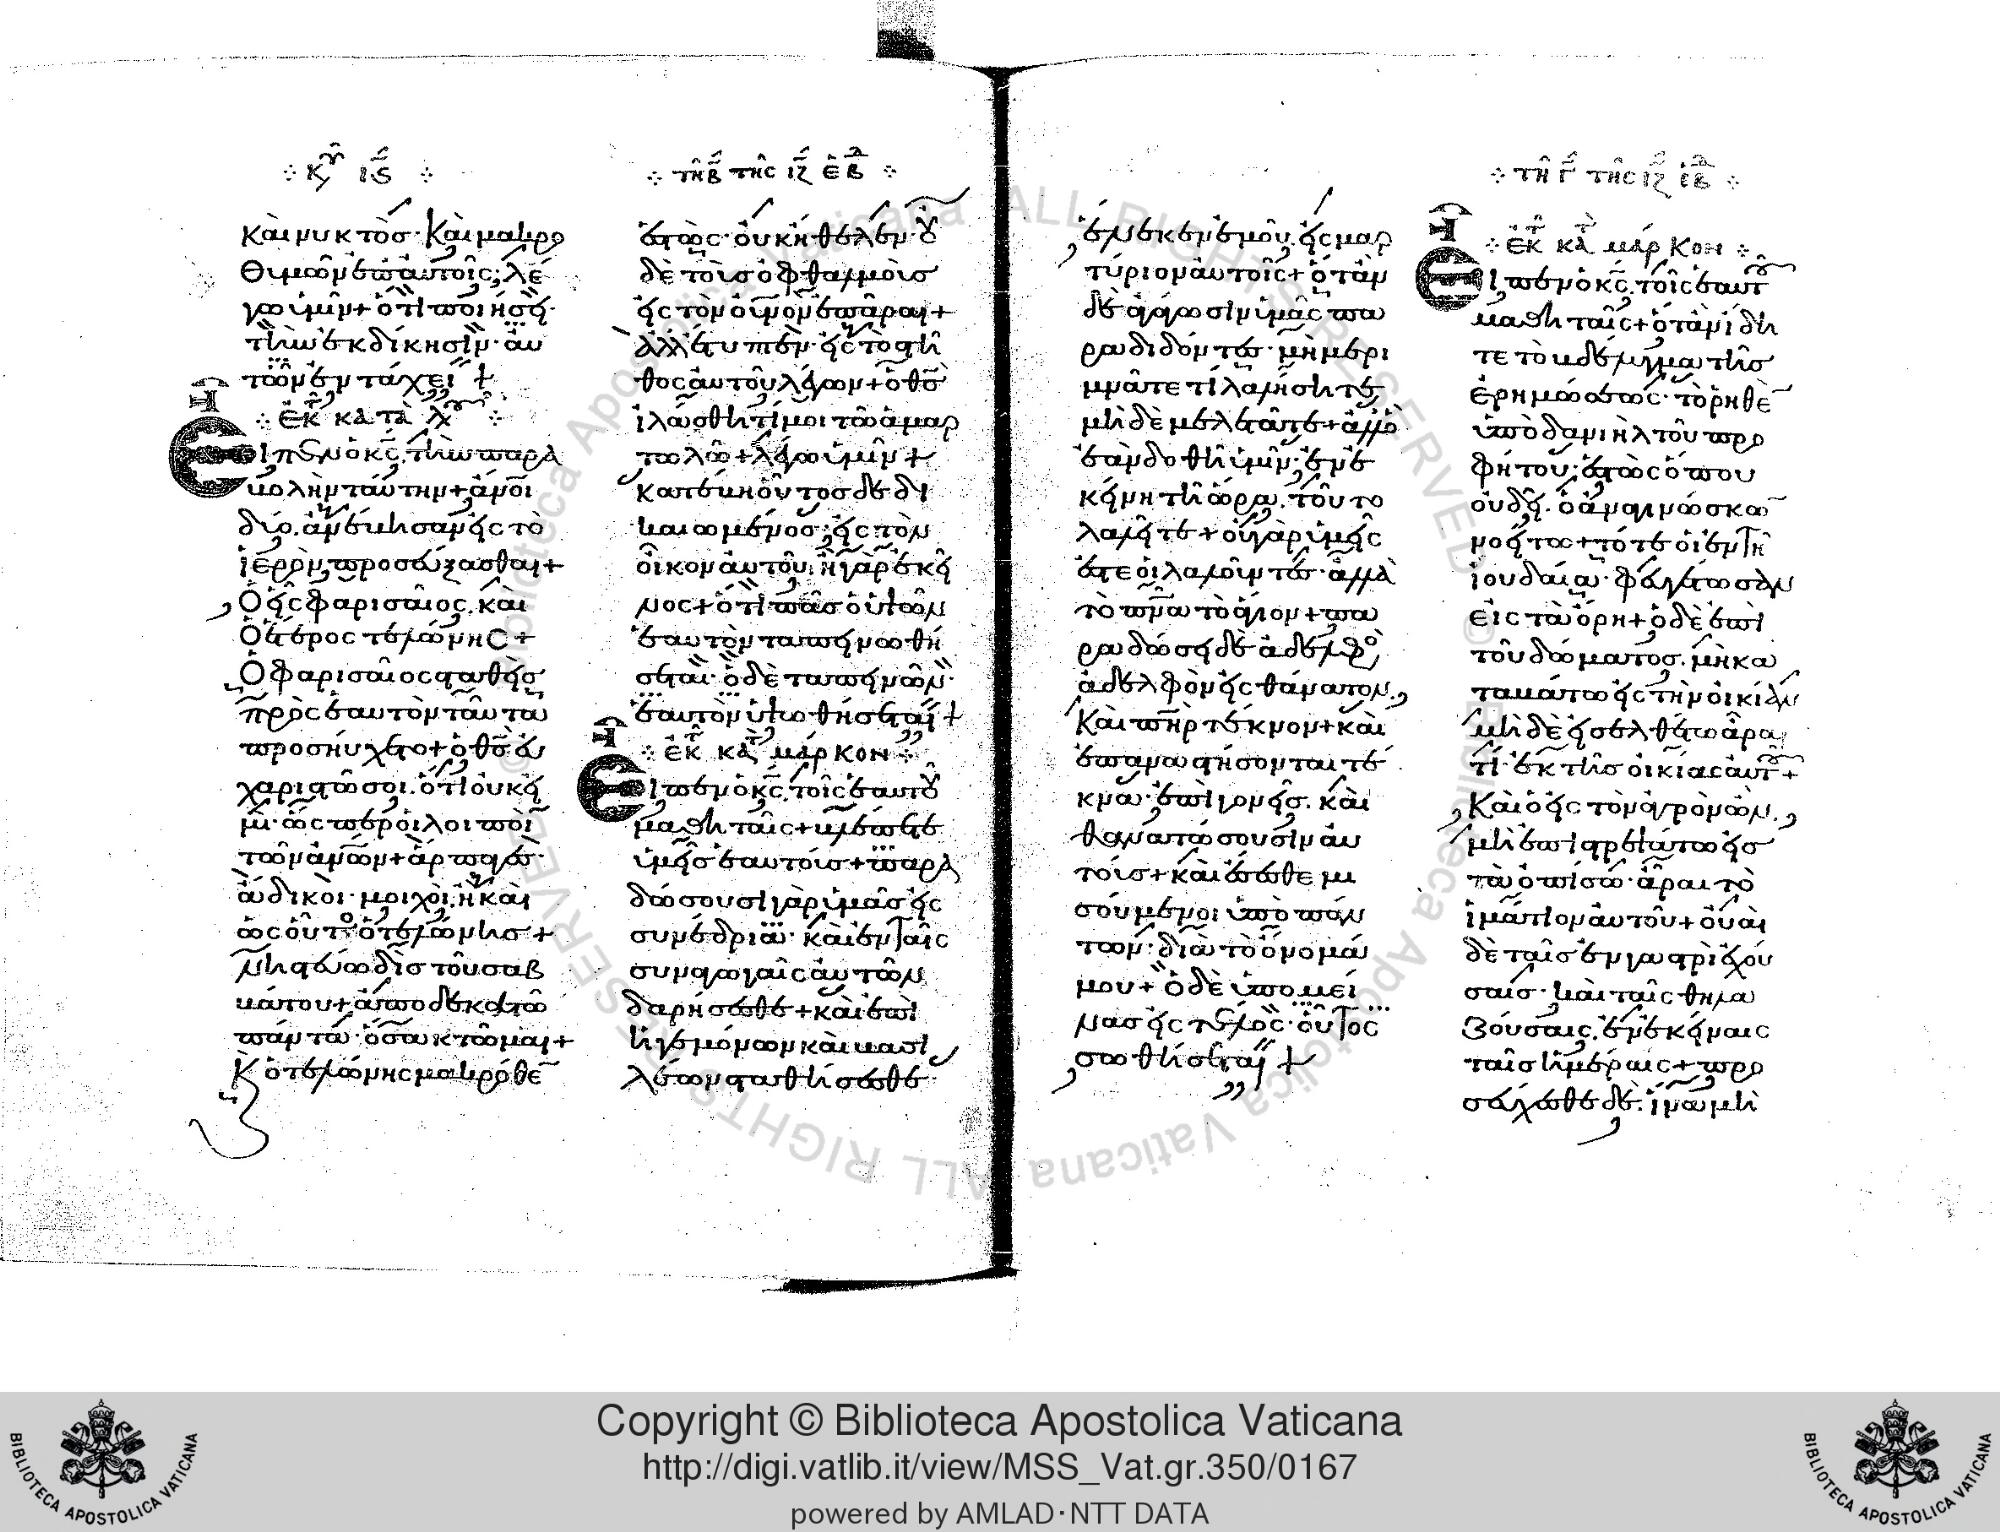 κυ ιϛ
και νυκτὸσ· Καὶ μακρο
θυμῶν ἐπ αὐτοῖς; λέ
γω ὑμῖν+ ὅτι ποιήσει
τὴν ἐκδίκησιν· αὐ
τῶν ἐν τάχει +
ἐκ κατὰ λου
Εἶπεν ὁ κς, τὴν παρα
βολὴν ταύτην+ ἄνοι
δύο. ἀνέβησαν εἰς τὸ
ἱερὸν, προσεύξασθαι+
Ὁ εἷς φαρισαῖος. καὶ
Ὁ ἕτερος τελώνης +
Ὁ φαρισαῖος σταθεὶς
πρὸς ἑαυτὸν ταῦτα
προσηύχετο+ ὁ θσ εὐ
χαριστῶ σοι. ὅτι οὐκ εἰ
μὶ· ὡς περ οἱ λοιποὶ
τῶν ἀνων+ ἅρπαγες·
ἄδικοι· μοιχοὶ, ἢ καὶ
ὡς οὗτος ὁ τελώνης +
νηστεύω δὶς τοῦ σαβ
βάτου+ ἀποδεκατῶ
πάντα ὅσα κτῶμαι+
Κ ὁ τελώνης μακρόθε
τῆ β τῆς ιζ ἑβ
ἑστὼς· οὐκ ἤθελεν· οὐ
δὲ τοὺς ὀφθαλμοὺς
εἰς τὸν οὐνον ἐπᾶραι+
ἀλλ ἔτυπτεν· εἰς τὸ στῆ
θος αὐτοῦ λέγων+ ὁ θσ
ἱλάσθητί μοι τῶ ἁμαρ
τωλῶ+ λέγω ὑμῖν+
κατέβη οὗτος δεδι
καιωμένος; εἰς τὸν
οἶκον αὐτοῦ, ἢ γὰρ ἐκεῖ
νος+ ὅτι πᾶς ὁ ὑψῶν
ἑαυτὸν ταπεινωθή
σεται· ὁ δὲ ταπεινῶν·
ἑαυτὸν ὑψωθήσεται+
ἐκ κατ μάρκον
Εἶπεν ὁ κς, τοῖς ἑαυτοῦ
μαθηταῖς+ βλέπετε
ὑμεῖς ἑαυτούς+ παρα
δώσουσι γὰρ ὑμᾶς εἰς
συνέδρια· καὶ ἐν ταῖς
συναγωγαῖς αὐτῶν
δαρήσεσθε+ καὶ ἐπὶ
ἡγεμόνων καὶ βασι
λέων σταθήσεσθε·
ἕνεκεν ἐμοῦ. εἰς μαρ
τύριον αὐτοῖς+ ὅταν
δὲ ἄγωσιν ὑμᾶς πα
ραδιδόντες· μὴ μερι
μνᾶτε τί λαλήσητε
μὴ δὲ μελετᾶτε+ ἀλλ ὃ
ἐὰν δοθῆ ὑμῖν; ἐν ἐ
κείνη τῆ ὥρα, τοῦτο
λαλεῖτε+ οὐ γὰρ ὑμεῖς
ἐστὲ οἱ λαλοῦντες· ἀλλὰ
τὸ πνα τὸ ἅγιον+ πα
ραδώσει δὲ ἀδελφὸς
ἀδελφὸν εἰς θάνατον,
Καὶ πηρ τέκνον+ καὶ
ἐπαναστήσονται τέ
κνα· ἐπὶ γονεῖς. καὶ
θανατώσουσιν αὐ
τούς+ καὶ ἔσεσθε μι
σούμενοι ὑπὸ πάν
των· διὰ τὸ ὄνομά
μου+ ὁ δὲ ὑπομεί
νας εἰς τέλος· οὗτος
σωθήσεται +
τῆ γ τῆς ιζ ἑβ
ἐκ κατ μάρκον
Εἶπεν ὁ κς. τοῖς ἑαυτοῦ
μαθηταῖς+ ὅταν ἴδη
τε τὸ βδέλυγμα τῆς
ἐρημώσεως· τὸ ρηθὲν
ὑπὸ δανιὴλ τοῦ προ
φήτου; ἑστὼς ὅπου
οὐ δεῖ. ὁ ἀναγινώσκων
νοείτω+ τότε οἱ ἐν τῆ
ἰουδαία· φευγέτωσαν
εἰς τὰ ὄρη+ ὁ δὲ ἐπὶ
τοῦ δώματος. μὴ κα
ταβάτω εἰς τὴν οἰκίαν
μὴ δὲ εἰσελθέτω ἆραι
τί· ἐκ τῆς οἰκίας αὐτοῦ+
Καὶ ὁ εἰς τὸν ἀγρὸν ὤν,
μὴ ἐπιστρεψάτω εἰς
τὰ ὀπίσω· ἆραι τὸ
ἱμάτιον αὐτοῦ+ οὐαὶ
δὲ ταῖς ἐν γαστρὶ ἐχού
σαις· καὶ ταῖς θηλα
ζούσαις, ἐν ἐκείναις
ταῖς ἡμέραις+ προ
σεύχεσθε δὲ. ἵνα μὴ
ALL RIGHTS RESERVED © Biblioteca Apostolica Vaticana
Copyright © Biblioteca Apostolica Vaticana
http://digi.vatlib.it/view/MSS_Vat.gr.350/0167
powered by AMLAD·NTT DATA
BIBLIOTECA APOSTOLICA VATICANA
BIBLIOTECA APOSTOLICA VATICANA